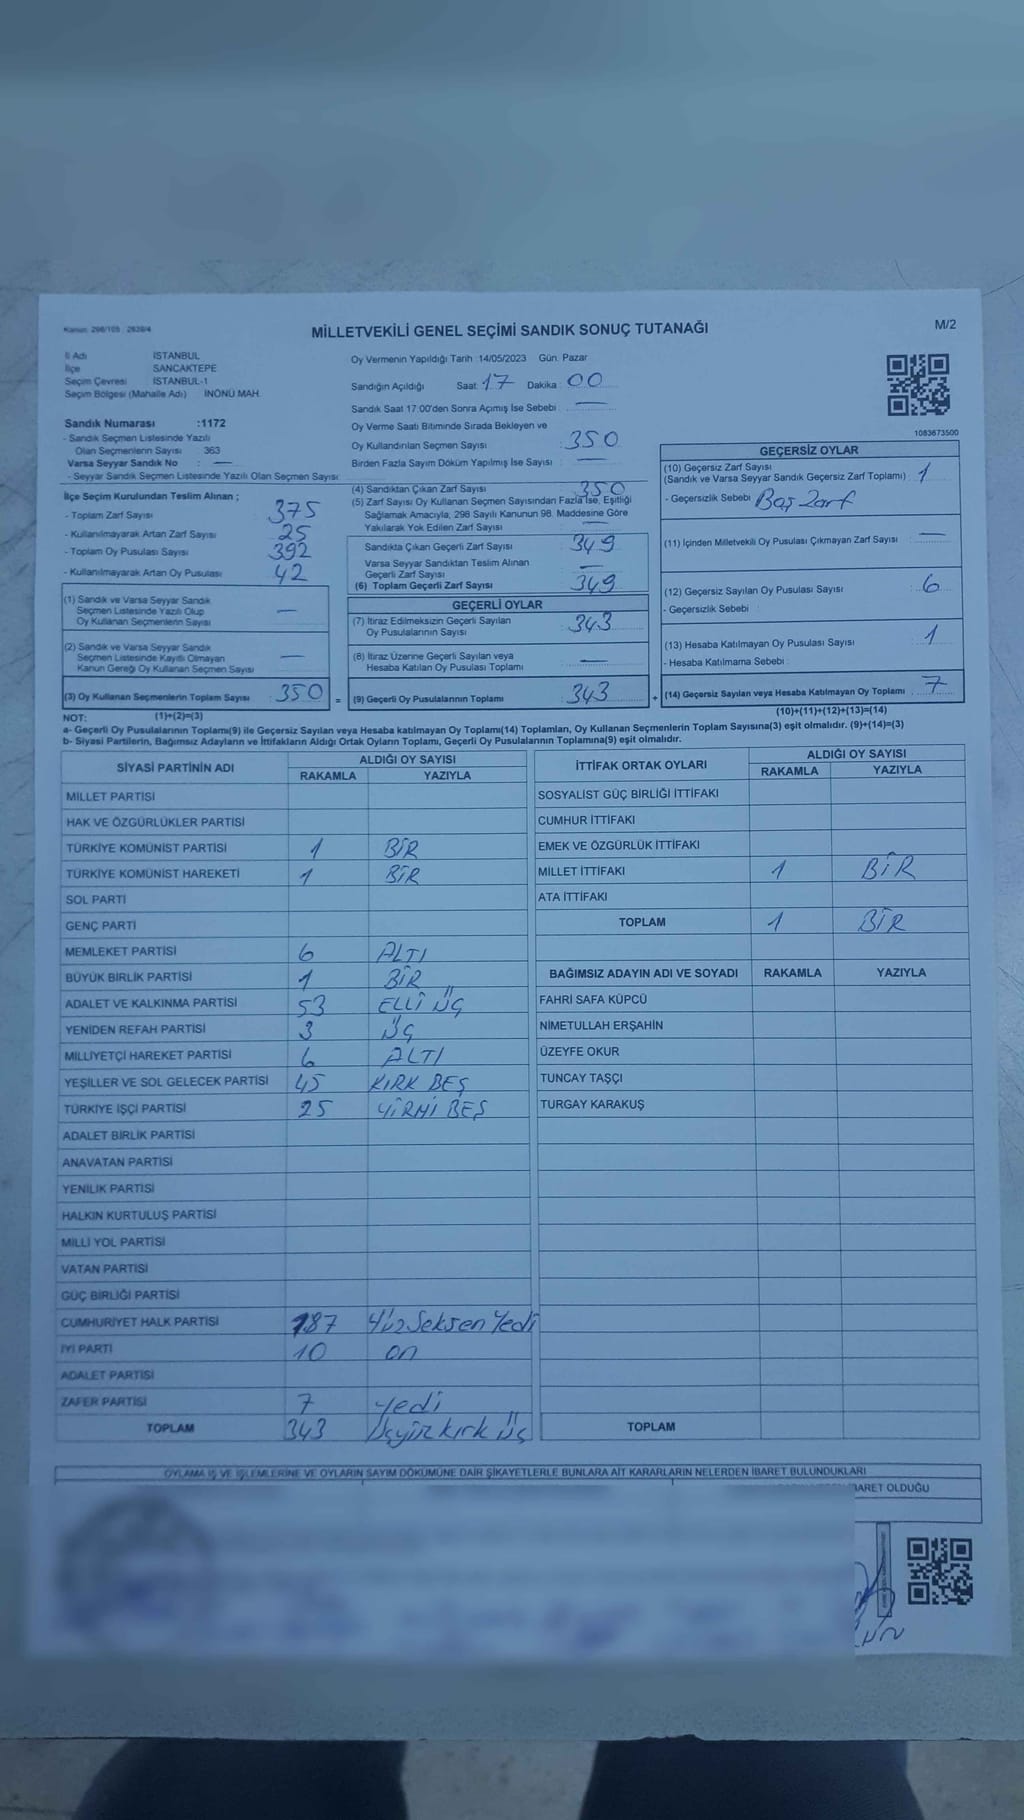 Kanun: 298/105 ; 2839/4
MİLLETVEKİLİ GENEL SEÇİMİ SANDIK SONUÇ TUTANAĞI
M/2
İl Adı İSTANBUL
İlçe SANCAKTEPE
Seçim Çevresi İSTANBUL-1
Seçim Bölgesi (Mahalle Adı) İNÖNÜ MAH.
Sandık Numarası :1172
- Sandık Seçmen Listesinde Yazılı
Olan Seçmenlerin Sayısı 363
Varsa Seyyar Sandık No : —
- Seyyar Sandık Seçmen Listesinde Yazılı Olan Seçmen Sayısı
Oy Vermenin Yapıldığı Tarih :14/05/2023 Gün: Pazar
Sandığın Açıldığı Saat: 17 Dakika: 00
Sandık Saat 17:00'den Sonra Açımış İse Sebebi : —
Oy Verme Saati Bitiminde Sırada Bekleyen ve
Oy Kullandırılan Seçmen Sayısı : 350
Birden Fazla Sayım Döküm Yapılmış İse Sayısı : —
1083673500
İlçe Seçim Kurulundan Teslim Alınan ;
- Toplam Zarf Sayısı 375
- Kullanılmayarak Artan Zarf Sayısı 25
- Toplam Oy Pusulası Sayısı 392
- Kullanılmayarak Artan Oy Pusulası 42
(1) Sandık ve Varsa Seyyar Sandık
Seçmen Listesinde Yazılı Olup
Oy Kullanan Seçmenlerin Sayısı —
(2) Sandık ve Varsa Seyyar Sandık
Seçmen Listesinde Kayıtlı Olmayan
Kanun Gereği Oy Kullanan Seçmen Sayısı —
(3) Oy Kullanan Seçmenlerin Toplam Sayısı 350 =
(1)+(2)=(3)
(4) Sandıktan Çıkan Zarf Sayısı 350
(5) Zarf Sayısı Oy Kullanan Seçmen Sayısından Fazla İse, Eşitliği
Sağlamak Amacıyla, 298 Sayılı Kanunun 98. Maddesine Göre
Yakılarak Yok Edilen Zarf Sayısı —
Sandıkta Çıkan Geçerli Zarf Sayısı 349
Varsa Seyyar Sandıktan Teslim Alınan
Geçerli Zarf Sayısı —
(6) Toplam Geçerli Zarf Sayısı 349
GEÇERLİ OYLAR
(7) İtiraz Edilmeksizin Geçerli Sayılan
Oy Pusulalarının Sayısı 343
(8) İtiraz Üzerine Geçerli Sayılan veya
Hesaba Katılan Oy Pusulası Toplamı —
(9) Geçerli Oy Pusulalarının Toplamı 343 +
GEÇERSİZ OYLAR
(10) Geçersiz Zarf Sayısı
(Sandık ve Varsa Seyyar Sandık Geçersiz Zarf Toplamı) 1
- Geçersizlik Sebebi : Boş Zarf
(11) İçinden Milletvekili Oy Pusulası Çıkmayan Zarf Sayısı —
(12) Geçersiz Sayılan Oy Pusulası Sayısı 6
- Geçersizlik Sebebi :
(13) Hesaba Katılmayan Oy Pusulası Sayısı 1
- Hesaba Katılmama Sebebi :
(14) Geçersiz Sayılan veya Hesaba Katılmayan Oy Toplamı 7
(10)+(11)+(12)+(13)=(14)
NOT:
a- Geçerli Oy Pusulalarının Toplamı(9) ile Geçersiz Sayılan veya Hesaba katılmayan Oy Toplamı(14) Toplamları, Oy Kullanan Seçmenlerin Toplam Sayısına(3) eşit olmalıdır. (9)+(14)=(3)
b- Siyasi Partilerin, Bağımsız Adayların ve İttifakların Aldığı Ortak Oyların Toplamı, Geçerli Oy Pusulalarının Toplamına(9) eşit olmalıdır.
SİYASİ PARTİNİN ADI ALDIĞI OY SAYISI
RAKAMLA YAZIYLA
MİLLET PARTİSİ
HAK VE ÖZGÜRLÜKLER PARTİSİ
TÜRKİYE KOMÜNİST PARTİSİ 1 BİR
TÜRKİYE KOMÜNİST HAREKETİ 1 BİR
SOL PARTİ
GENÇ PARTİ
MEMLEKET PARTİSİ 6 ALTI
BÜYÜK BİRLİK PARTİSİ 1 BİR
ADALET VE KALKINMA PARTİSİ 53 ELLİ ÜÇ
YENİDEN REFAH PARTİSİ 3 ÜÇ
MİLLİYETÇİ HAREKET PARTİSİ 6 ALTI
YEŞİLLER VE SOL GELECEK PARTİSİ 45 KIRK BEŞ
TÜRKİYE İŞÇİ PARTİSİ 25 YİRMİ BEŞ
ADALET BİRLİK PARTİSİ
ANAVATAN PARTİSİ
YENİLİK PARTİSİ
HALKIN KURTULUŞ PARTİSİ
MİLLİ YOL PARTİSİ
VATAN PARTİSİ
GÜÇ BİRLİĞİ PARTİSİ
CUMHURİYET HALK PARTİSİ 187 Yüz Seksen Yedi
İYİ PARTİ 10 on
ADALET PARTİSİ
ZAFER PARTİSİ 7 Yedi
TOPLAM 343 Üçyüz kırk üç
İTTİFAK ORTAK OYLARI ALDIĞI OY SAYISI
RAKAMLA YAZIYLA
SOSYALİST GÜÇ BİRLİĞİ İTTİFAKI
CUMHUR İTTİFAKI
EMEK VE ÖZGÜRLÜK İTTİFAKI
MİLLET İTTİFAKI 1 BİR
ATA İTTİFAKI
TOPLAM 1 BİR
BAĞIMSIZ ADAYIN ADI VE SOYADI RAKAMLA YAZIYLA
FAHRİ SAFA KÜPCÜ
NİMETULLAH ERŞAHİN
ÜZEYFE OKUR
TUNCAY TAŞÇI
TURGAY KARAKUŞ
TOPLAM
OYLAMA İŞ VE İŞLEMLERİNE VE OYLARIN SAYIM DÖKÜMÜNE DAİR ŞİKAYETLERLE BUNLARA AİT KARARLARIN NELERDEN İBARET BULUNDUKLARI
İBARET OLDUĞU